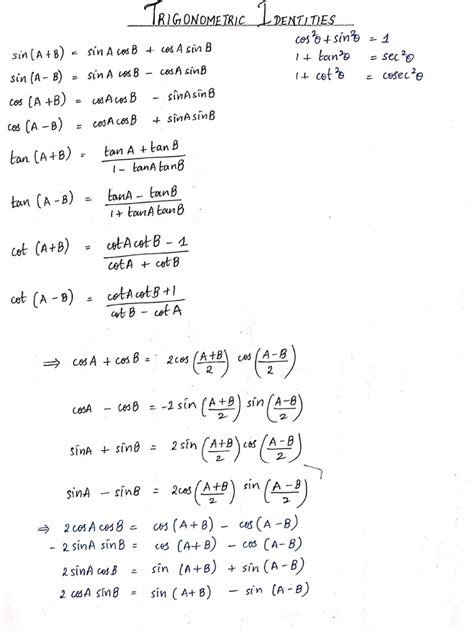 TRIGONOMETRIC IDENTITIES
cos²θ + sin²θ = 1
1 + tan²θ = sec²θ
1 + cot²θ = cosec²θ
sin(A+B) = sinA cosB + cosA sinB
sin(A-B) = sinA cosB - cosA sinB
cos(A+B) = cosA cosB - sinA sinB
cos(A-B) = cosA cosB + sinA sinB
tan(A+B) = (tanA + tanB)/(1 - tanA tanB)
tan(A-B) = (tanA - tanB)/(1 + tanA tanB)
cot(A+B) = (cotA cotB - 1)/(cotA + cotB)
cot(A-B) = (cotA cotB + 1)/(cotB - cotA)
⇒ cosA + cosB = 2cos((A+B)/2) cos((A-B)/2)
cosA - cosB = -2sin((A+B)/2) sin((A-B)/2)
sinA + sinB = 2sin((A+B)/2) cos((A-B)/2)
sinA - sinB = 2cos((A+B)/2) sin((A-B)/2)
⇒ 2cosA cosB = cos(A+B) - cos(A-B)
-2sinA sinB = cos(A+B) - cos(A-B)
2sinA cosB = sin(A+B) + sin(A-B)
2cosA sinB = sin(A+B) - sin(A-B)